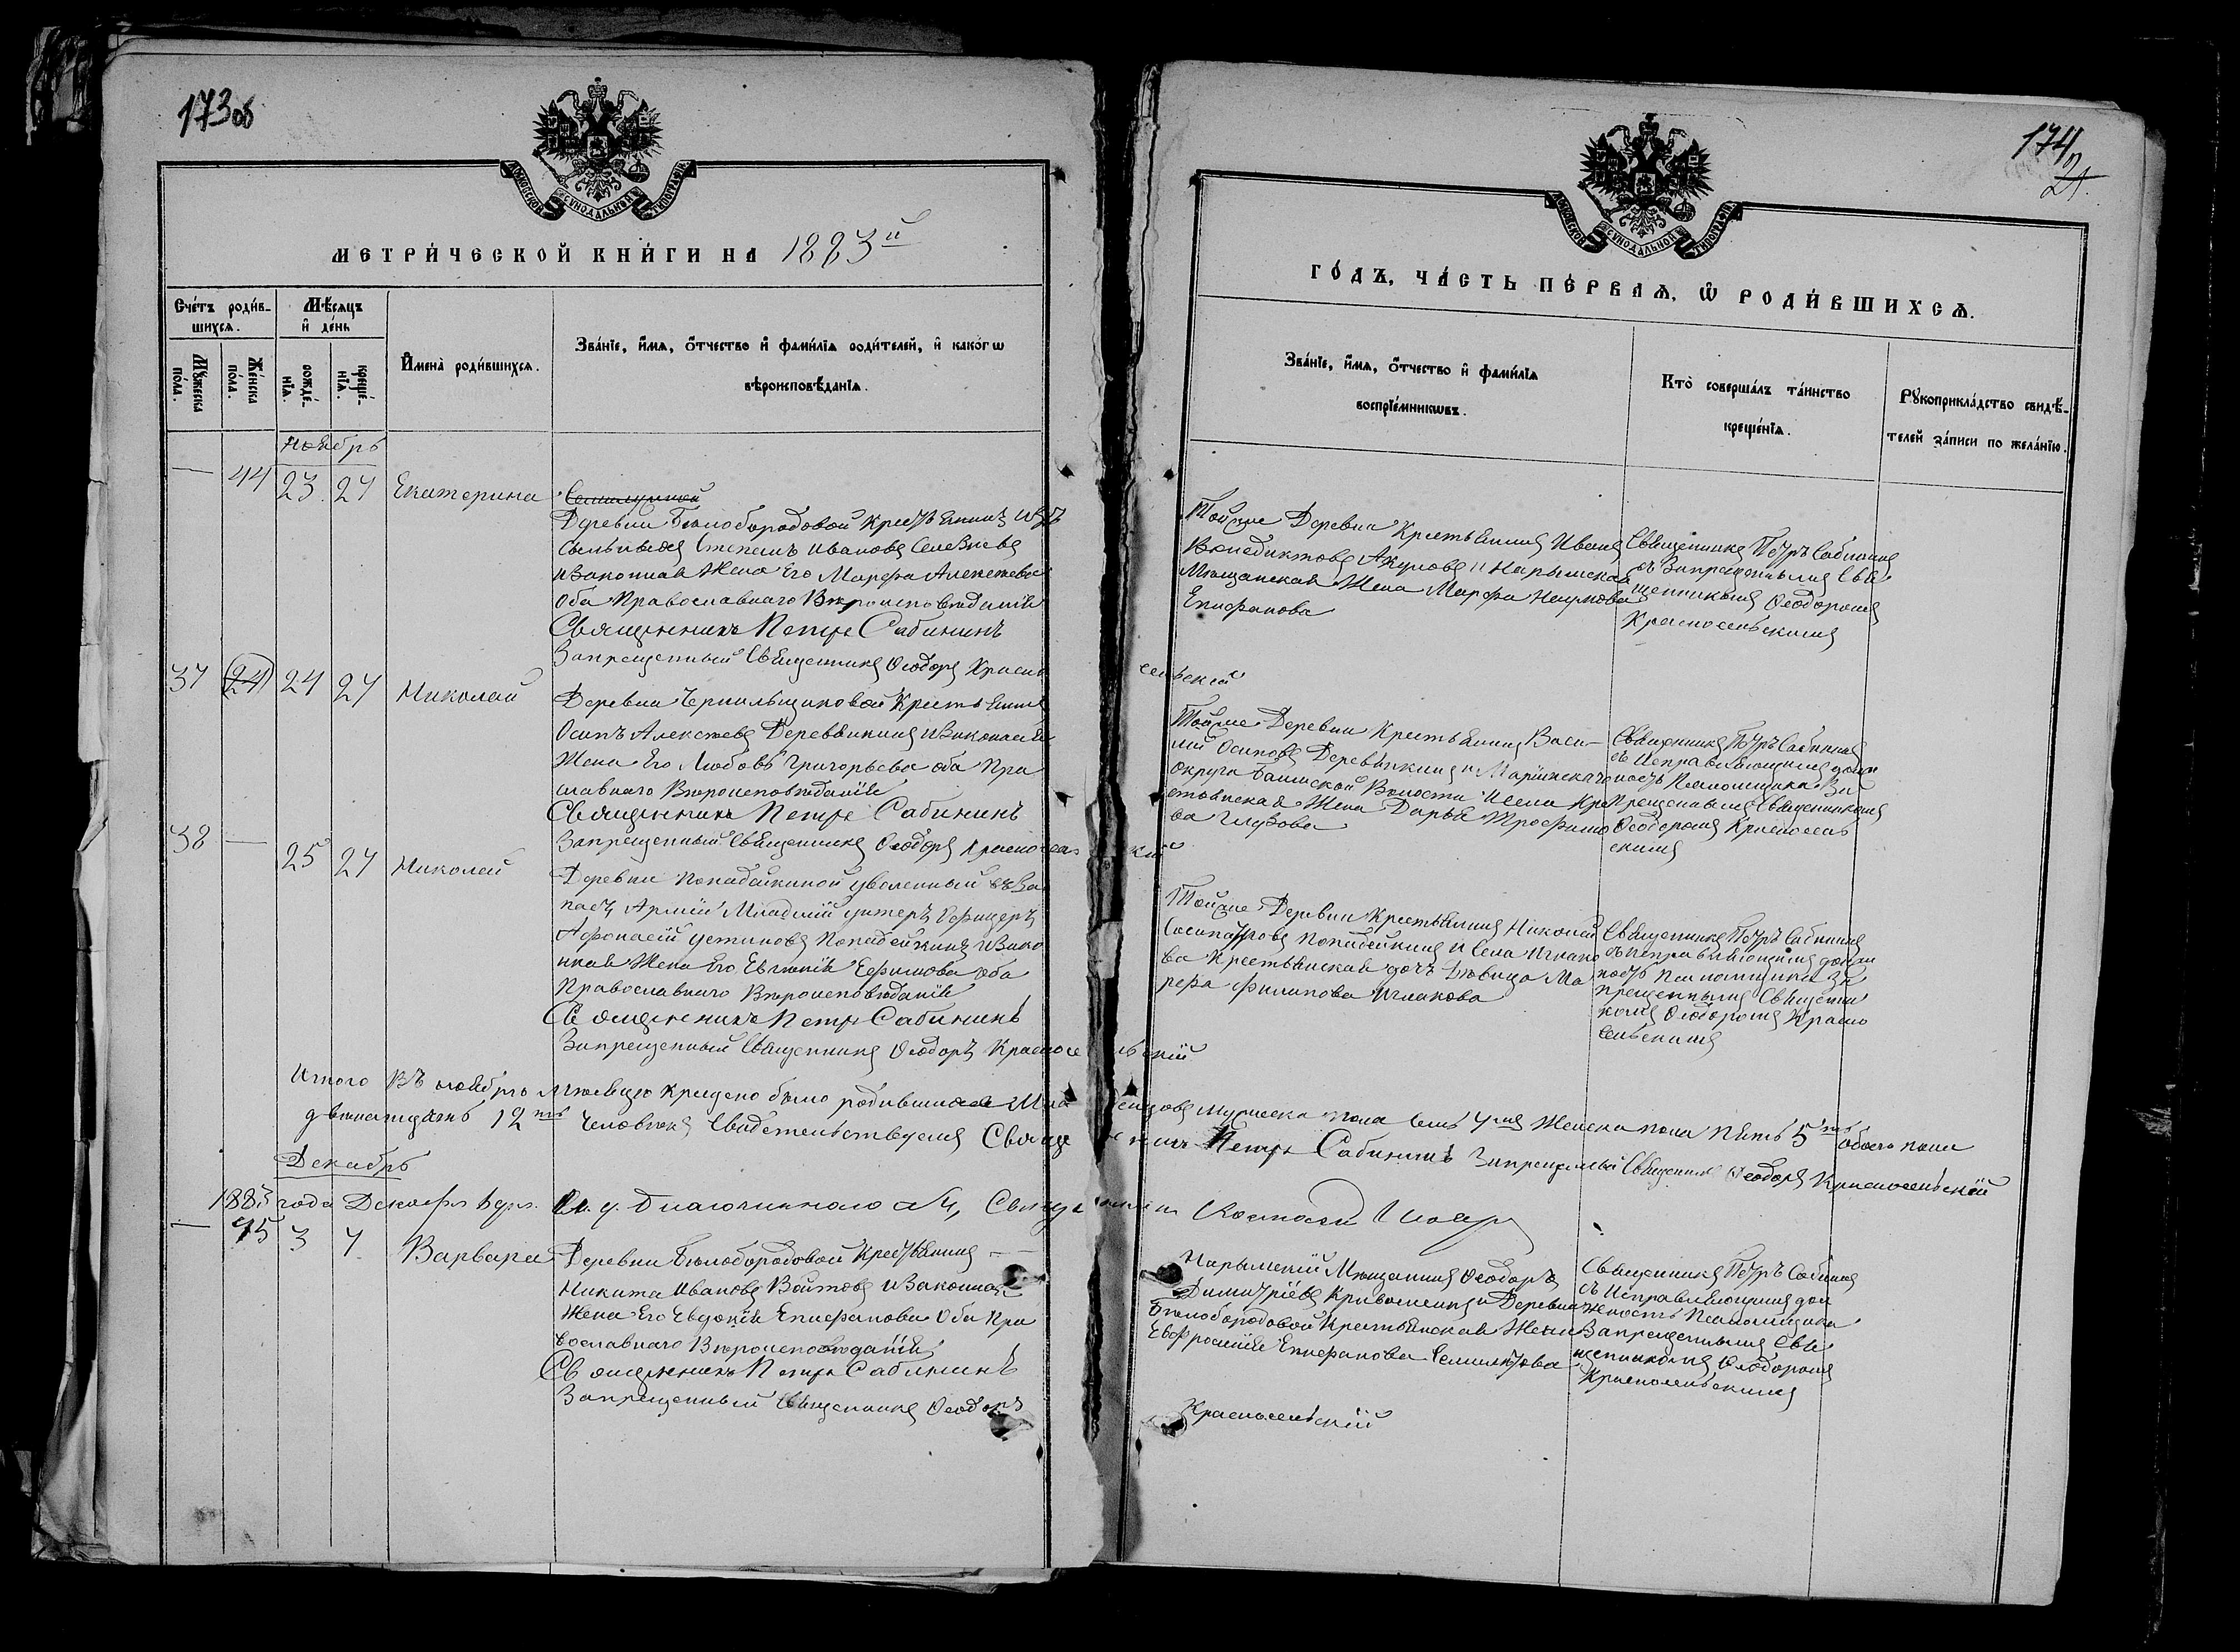 173об
МОСКОВСКОЙ СУНОДАЛЬНОЙ ТИПОГРАФІИ
МЕТРИЧЕСКОЙ КНИГИ НА 1883й
Счетъ родив-
шихся.
Мѣсяцъ
и день
Мужеска
пола.
Женска
пола.
рожде-
нія.
креще-
нія.
Имена родившихся.
Званіе, имя, отчество и фамилія родителей, и какогѡ
вѣроисповѣданія.
Ноябрь
— 44 23 27 Екатерина
Деревни Бѣлобородовой Крестьянинъ изъ
Степанъ Ивановъ Селезневъ
и Законная Жена Его Марфа Алексѣева
Оба Православнаго Вѣроисповѣданія
Священникъ Петръ Сабининъ
Запрещенный Священникъ Ѳеодоръ Красно
37 24 24 27 Николай
Деревни Чернильщиковой Крестьянинъ
Осипъ Алексѣевъ Деревянкинъ и Законная
Жена Его Любовь Григорьева оба Пра
славнаго Вѣроисповѣданія
Священникъ Петръ Сабининъ
Запрещенный Священникъ Ѳеодоръ Красносель
38 — 25 27 Николай
Деревни Попадейкиной уволенный въ За
пасъ Арміи Младшій унтеръ Офицеръ
Афонасій Устиновъ Попадейкинъ и Зако
нная Жена Его Евгенія Ефимова оба
Православнаго Вѣроисповѣданія
Священникъ Петръ Сабининъ
Запрещенный Священникъ Ѳеодоръ Красносе
Итого Въ ноябрѣ Мѣсяцѣ крещено было родившихся Мла
двѣнадцать 12ть Человѣкъ Свидетельствуемъ Священ
Декабрь
1883 года Декабря дня. Благочиннаго №4, Свяще
— 45 3 4 Варвара
Деревни Бѣлобородовой Крестьянинъ
Никита Ивановъ Войтовъ и Законная
Жена Его Евдокія Епифанова Оба Пра
вославнаго Вѣроисповѣданія
Священникъ Петръ Сабининъ
Запрещенный Священникъ Ѳеодоръ
174
21.
МОСКОВСКОЙ СУНОДАЛЬНОЙ ТИПОГРАФІИ
ГОДЪ, ЧАСТЬ ПЕРВАЯ, Ѡ РОДИВШИХСЯ.
Званіе, имя, отчество и фамилія
воспріемникѡвъ.
Кто совершалъ таинство
крещенія.
Рукоприкладство свидѣ-
телей записи по желанію.
Той же Деревни Крестьянинъ Иванъ
Венедиктовъ Акуловъ и Нарымская
Мѣщанская Жена Марфа Наумова
Епифанова
Священникъ Петръ Сабининъ
съ Запрещеннымъ Свя
щенникомъ Ѳеодоромъ
Красносельскимъ
сельскій
Той же Деревни Крестьянинъ Васи-
лій Осиповъ Деревянкинъ и Маріинскаго
округа Баимской Волости и села Кре
стьянская Жена Дарья Трофимо
ва Глебова
Священникъ Петръ Сабининъ
съ Исправляющимъ долж
ность Псаломщика За
прещеннымъ Священникомъ
Ѳеодоромъ Красносель
скимъ
кій
Той же Деревни Крестьянинъ Николай
Сосипатровъ Попадейкинъ и Села
ва Крестьянская дочь дѣвица Ма
рфа Филипова
Священникъ Петръ Сабининъ
съ Исправляющимъ долж
ность Псаломщика За
прещеннымъ Священни
комъ Ѳеодоромъ Красно
сельскимъ
льскій
денцовъ Мужеска пола семь 7мь Женска пола пять 5ть обоего пола
никъ Петръ Сабининъ Запрещенный Священникъ Ѳеодоръ Красносельскій
Нарымскій Мѣщанинъ Ѳеодоръ
Димитріевъ и Деревни
Бѣлобородовой Крестьянская Жена
Евфросинія Епифанова
Священникъ Петръ Сабининъ
съ Исправляющимъ дол
жность Псаломщика
Запрещеннымъ Свя
щенникомъ Ѳеодоромъ
Красносельскимъ
Красносельскій